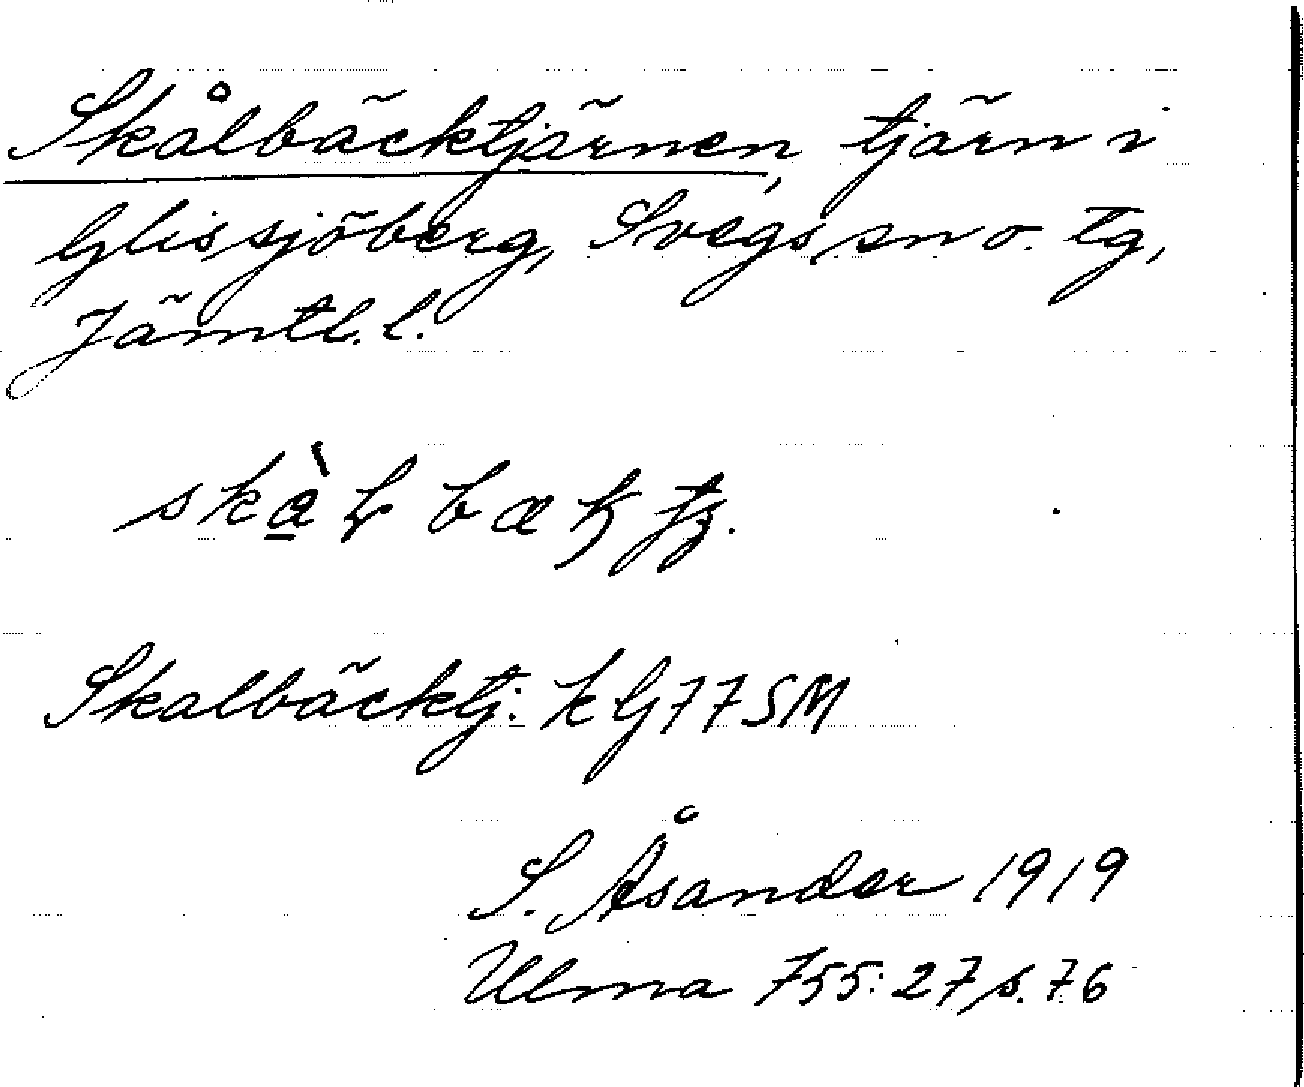 Skålbäcktjärnen, tjärn i
Glissjöberg, Svegs sn o. tg,
Jämtl. l.
Skalbäcktj. k G 77 SM
S. Åsander 1919
Ulma 755:27 s. 76